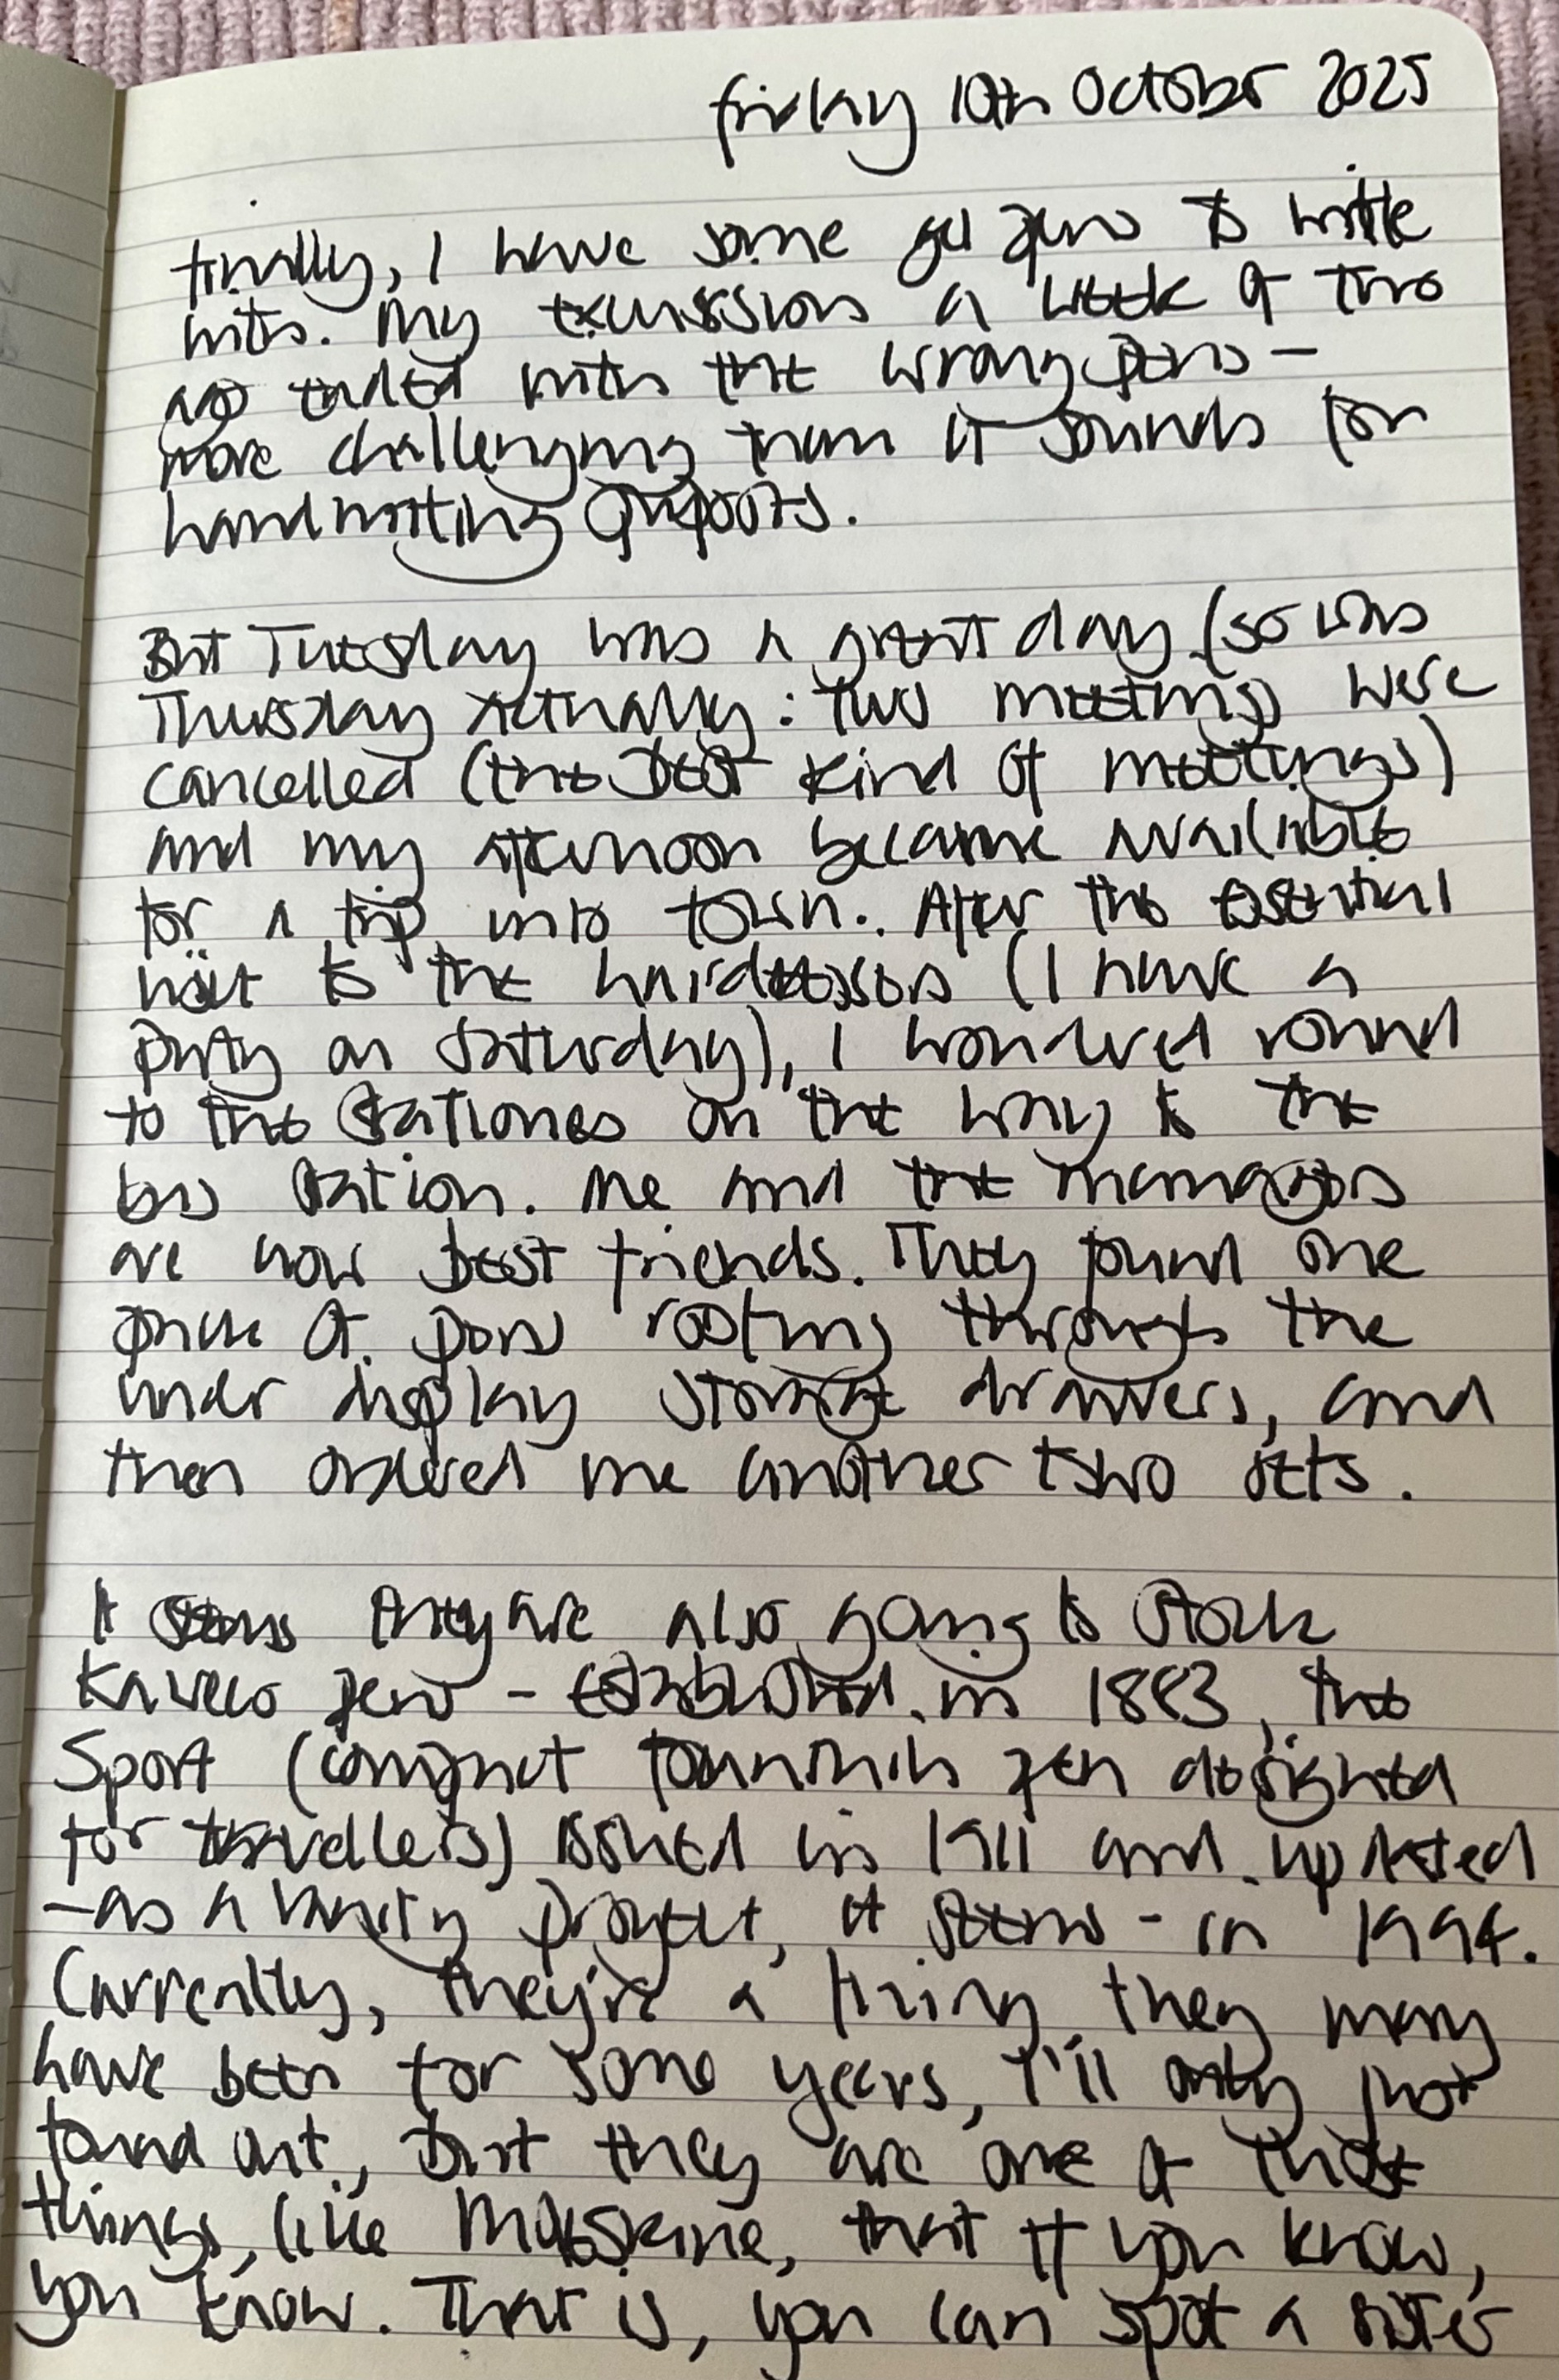 friday 10th October 2025
finally, I have some gel pens to write
with. My excursion a week or two
ago ended with the wrong pens –
more challenging than it sounds for
handwriting purposes.
But Tuesday was a great day (so was
Thursday actually: two meetings were
cancelled (the best kind of meetings)
and my afternoon became available
for a trip into town. After the essential
visit to the hairdressers (I have a
party on Saturday), I wandered round
to the stationers on the way to the
bus station. Me and the managers
are now best friends. They found one
pack of pens rooting through the
under display storage drawers, and
then ordered me another two sets.
It seems they're also going to stock
Kaweco pens – established in 1883, the
Sport (compact fountain pen designed
for travellers) issued in 1911 and updated
– as a vanity project, it seems – in 1994.
Currently, they're a thing, they may
have been for some years, I'll only just
found out, but they are one of those
things, like Moleskine, that if you know,
you know. That is, you can spot a sister